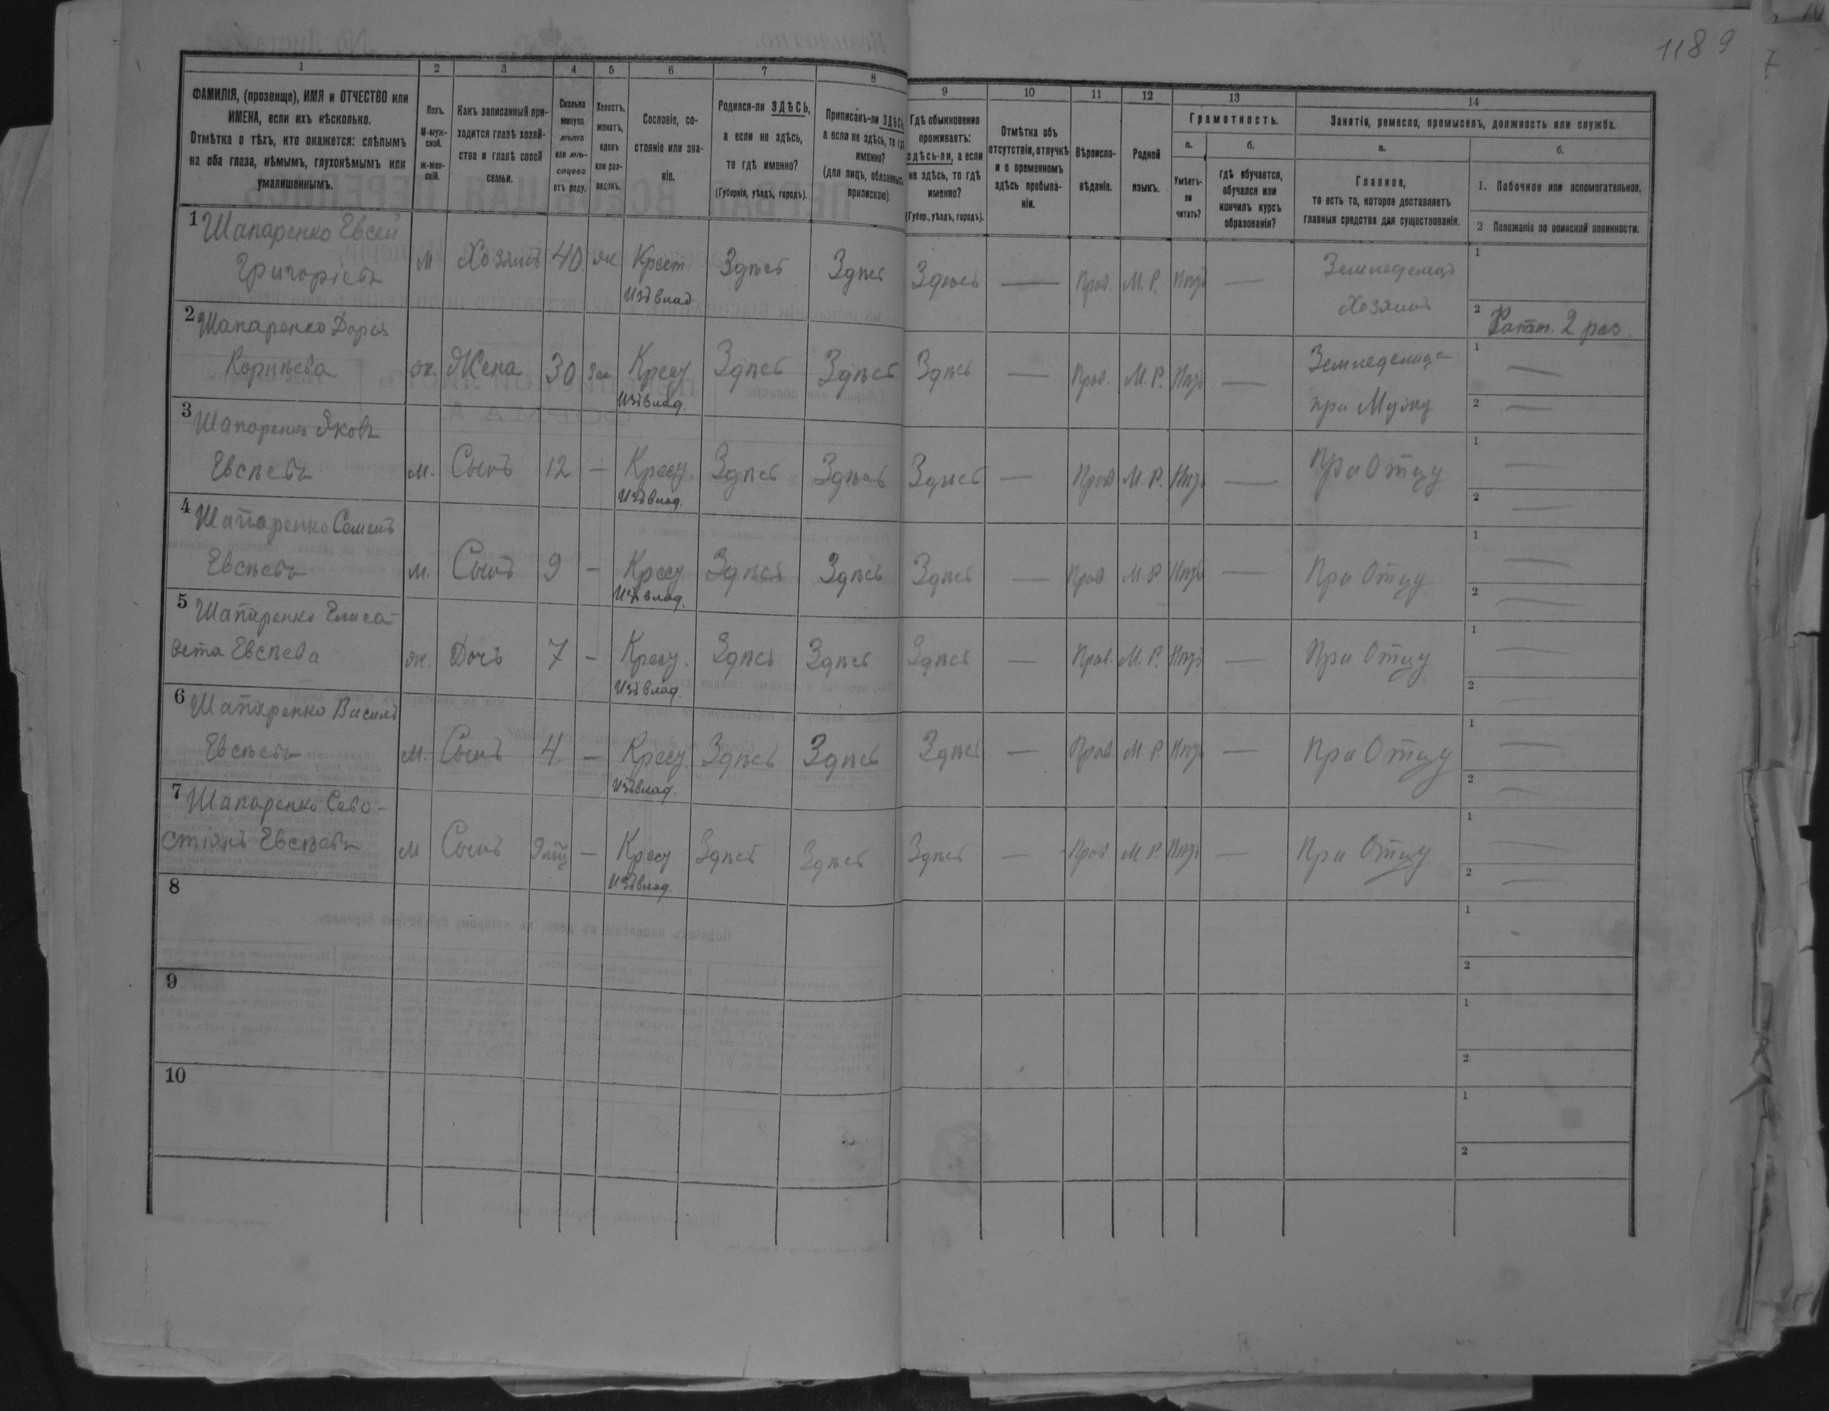 1189
1 2 3 4 5 6 7 8 9 10 11 12 13 14
ФАМИЛІЯ, (прозвище), ИМЯ и ОТЧЕСТВО или
ИМЕНА, если ихъ нѣсколько.
Отмѣтка о тѣхъ, кто окажется: слѣпымъ
на оба глаза, нѣмымъ, глухонѣмымъ или
умалишеннымъ.
Полъ.
М-муж-
ской.
ж-жен-
скій.
Какъ записанный при-
ходится главѣ хозяй-
ства и главѣ своей
семьи.
Сколько
минуло
лѣтъ
или мѣ-
сяцевъ
отъ роду.
Холостъ,
женатъ,
вдовъ
или раз-
веденъ.
Сословіе, со-
стояніе или зва-
ніе.
Родился-ли ЗДѢСЬ,
а если не здѣсь,
то гдѣ именно?
(Губернія, уѣздъ, городъ).
Приписанъ-ли ЗДѢСЬ,
а если не здѣсь, то гдѣ
именно?
(для лицъ, обязанныхъ
припиской)
Гдѣ обыкновенно
проживаетъ:
здѣсь-ли, а если
не здѣсь, то гдѣ
именно?
(Губер., уѣздъ, городъ).
Отмѣтка объ
отсутствіи, отлучкѣ
и о временномъ
здѣсь пребыва-
ніи.
Вѣроиспо-
вѣданіе.
Родной
языкъ.
Грамотность.
а.
Умѣетъ-
ли
читать?
б.
гдѣ обучается,
обучался или
кончилъ курсъ
образованія?
Занятія, ремесло, промыселъ, должность или служба.
а.
Главное,
то есть то, которое доставляетъ
главныя средства для существованія.
б.
1. Побочное или вспомогательное.
2 Положеніе по воинской повинности.
1 Шапаренко Евсей
Григорьевъ м Хозяинъ 40 ж Крест. Здѣсь Здѣсь Здѣсь — Прав. М. Р. Нѣтъ — Земледелецъ 1
Изъ влад. Хозяинъ 2 Ратн. 2 раз.
2 Шапаренко Дарья
Корнѣева ж. Жена 30 Зам Кресу Здѣсь Здѣсь Здѣсь — Прав. М. Р. Нѣтъ — Земледелица 1 —
Изъ влад. при Мужу 2 —
3 Шапаренко Яковъ
Евсѣевъ м. Сынъ 12 — Кресу Здѣсь Здѣсь Здѣсь — Прав М. Р. Нѣтъ — При Отцу 1 —
Изъ влад. 2 —
4 Шапаренко Семенъ
Евсѣевъ м. Сынъ 9 — Кресу Здѣсь Здѣсь Здѣсь — Прав М. Р. Нѣтъ — При Отцу 1 —
Изъ влад. 2 —
5 Шапаренко Елиса-
вета Евсѣева ж. Дочь 7 — Кресу. Здѣсь Здѣсь Здѣсь — Прав. М. Р. Нѣтъ — При Отцу 1 —
Изъ влад. 2 —
6 Шапаренко Василь
Евсѣевъ м. Сынъ 4 — Кресу Здѣсь Здѣсь Здѣсь — Прав. М Р. Нѣтъ — При Отцу 1 —
Изъ влад. 2 —
7 Шапаренко Сево-
стіянъ Евсѣевъ м Сынъ 9 мц — Кресу Здѣсь Здѣсь Здѣсь — Прав. М Р. Нѣтъ — При Отцу 1 —
Изъ влад. 2 —
8 1
2
9 1
2
10 1
2